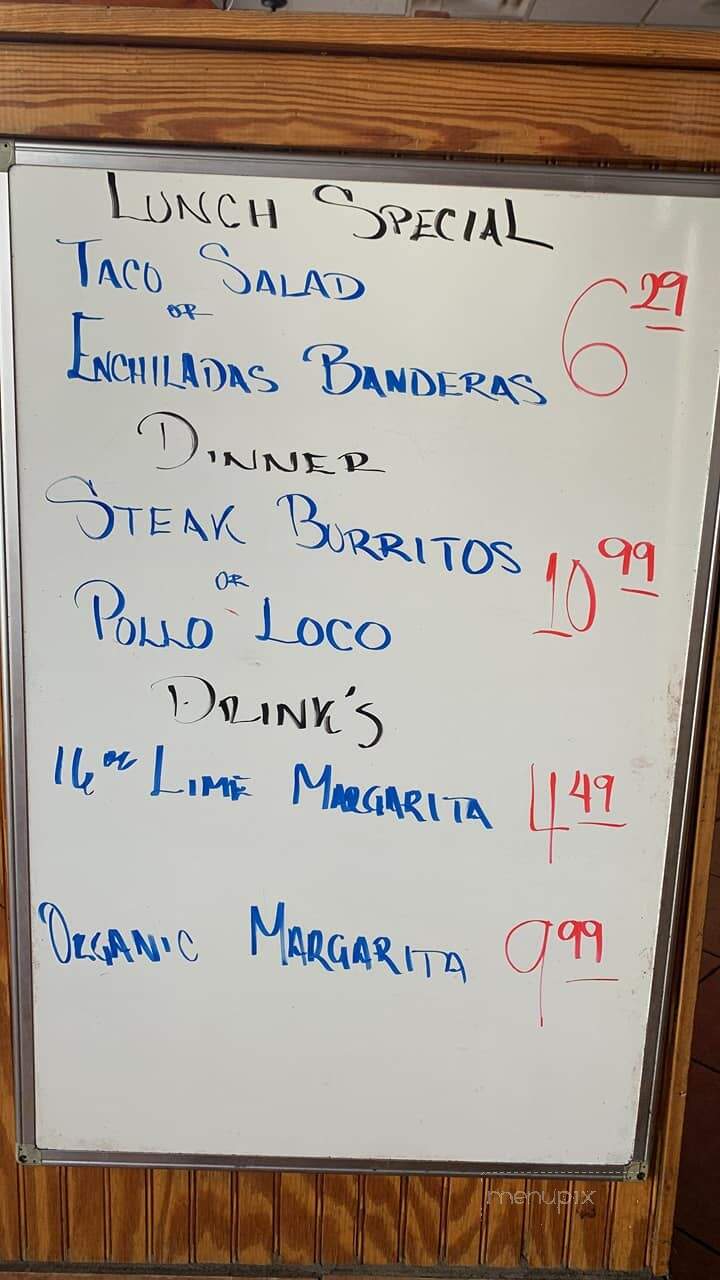 LUNCH SPECIAL
TACO SALAD
OR
ENCHILADAS BANDERAS 6 29
DINNER
STEAK BURRITOS
OR 10 99
POLLO LOCO
DRINK'S
16 oz LIME MARGARITA 4 49
ORGANIC MARGARITA 9 99
menupix